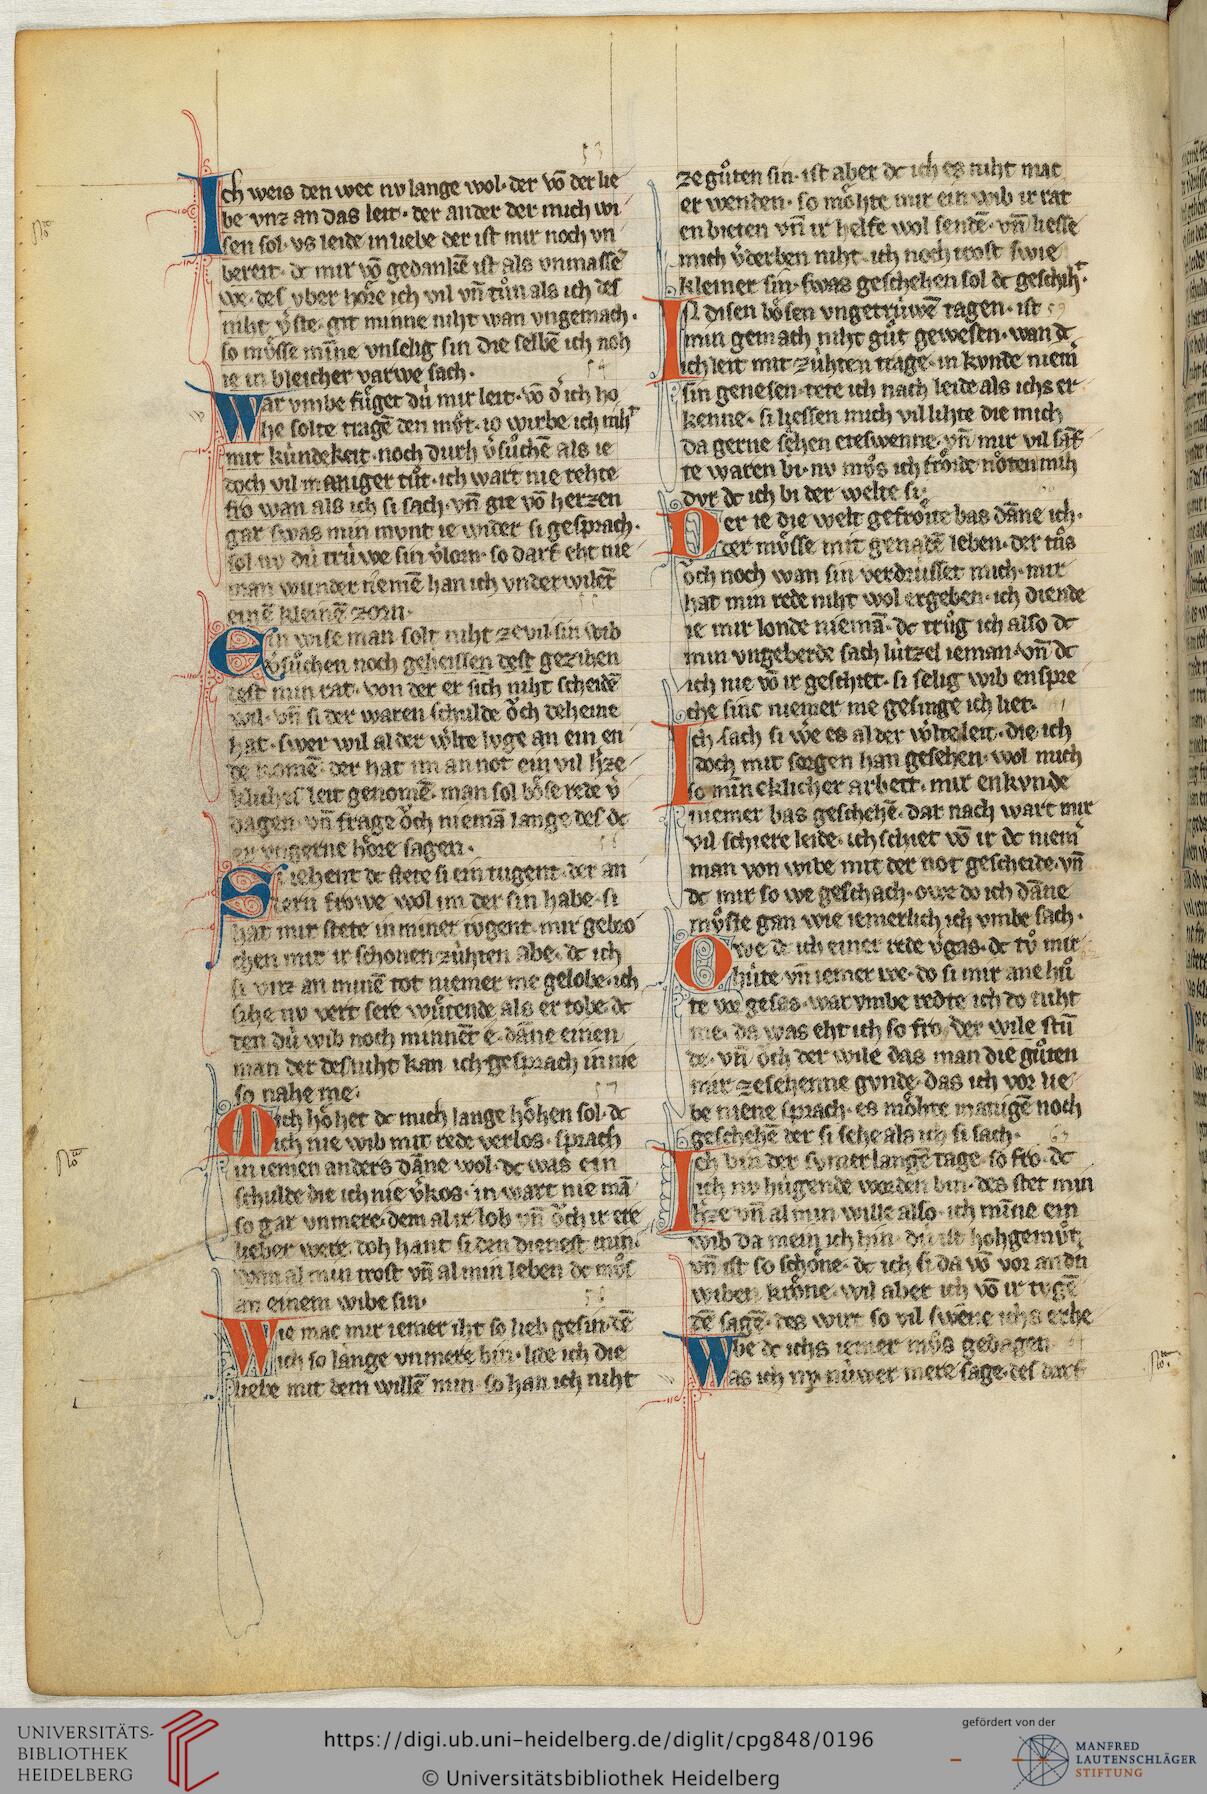 53
Ich weis den wec nv lange wol· der võ der lie
be vnz an das leit· der ander der mich wi
sen sol· vs leide in liebe der ist mir noch vn
bereit· dc mir võ gedankẽ ist als vnmassẽ
we· des vber hőre ich vil vñ tůn als ich des
niht v̾ste· git minne niht wan vngemach·
so mv̊sse mĩne vnselig sin die selbẽ ich noh
ie in bleicher varwe sach·
54
War vmbe fůget dú mir leit· võ d̾ ich ho
he solte tragẽ den mv̊t· io wirbe ich niht
mit kúndekeit· noch durh v̾sůchẽ als ie
doch vil maniger tůt· ich wart nie rehte
fro wan als ich si sach· vñ gie võ herzen
gar swas min mvnt ie wider si gesprach·
sol nv dú trúwe sin v̾lorn· so darf eht nie
man wunder nemẽ han ich vnderwilẽt
einẽ kleinẽ zorn·
Ein wise man solt niht ze vil· sin wib
v̾sůchen noch geheissen dest gezihen
dest min rat· von der er sich niht scheidẽ
wil· vñ si der waren schulde ǒch deheine
hat· swer wil al der wʼlte lvge an ein en
de komẽ· der hat im an not ein vil hʼze
kliches leit genomẽ· man sol bőse rede v̾
dagen· vñ frage ǒch niemã lange des dc
er vngerne hőre sagen·
Si iehent dc stete si ein tugent· der an
dern frowe wol im der sin habe· si
hat mir stete in miner ivgent· mir gebro
chen mit ir schonen zúhten abe· dc ich
si vnz an minẽ tot niemer me gelobe· ich
sihe nv vert sere wůtende als er tobe· dc
den dú wib noch minnẽt e· dãne einen
man der des niht kan· ich gesprach in nie
so nahe me·
57
Mich hőhet dc mich lange hőhen sol· dc
ich nie wib mit rede verlos· sprach
in iemen anders dãne wol· dc was ein
schulde die ich nie v̾kos· in wart nie mã
so gar vnmere· dem al ir lob vñ ǒch ir ere
lieber were· doh hant si den dienest min·
wan al min trost vñ al min leben dc mv̊s
an einem wibe sin·
58
Wie mac mir iemer iht so lieb gesin· dẽ
ich so lange vnmere bin· lide ich die
liebe mit dem willẽ min· so han ich niht
ze gůten sin· ist aber dc ich es niht mac
er wenden· so mőhte mir ein wib ir rat
en bieten vñ ir helfe wol sendẽ· vñ liesse
mich v̾derben niht· ich noch trost swie
kleiner sin· swas geschehen sol dc geschiht·
59
In disen bősen vngetrúwẽ tagen· ist
min gemach niht gůt gewesen· wan dc
ich leit mit zúhten trage· in kvnde niem̾
sin genesen· tete ich nach leide als ichs er
kenne· si liessen mich vil lihte die mich
da gerne sehen eteswenne· vñ mir vil sãf
te waren bi· nv mv̊s ich frőide nőten mih
dvr dc ich bi der welte si·
Der ie die welt gefrőite bas dãne ich·
der mv̊sse mit genadẽ leben· der tůs
ǒch noch wan sin verdriusset mich· mir
hat min rede niht wol ergeben· ich diende
ie mir londe niemã· dc trůg ich also dc
min vngeberde sach lútzel ieman· vñ dc
ich nie võ ir geschiet· si selig wib enspre
che sinc niemer me gesinge ich liet·
Ich sach si wʼe es al der wʼlte leit· die ich
doch mit sorgen han gesehen· wol mich
so mĩneklicher arbeit· mir enkvnde
niemer bas geschehẽ· dar nach wart mir
vil schiere leide· ich schiet võ ir dc niem̾
man von wibe mit der not gescheide· vñ
dc mir so we geschach· owe do ich dãne
mv̊ste gan wie iemerlich ich vmbe sach·
Owe dc ich einer rede v̾gas· dc tv̊ mir
húte vñ iemer we· do si mir ane hů
te vor gesas· war vmbe redte ich do niht
me· da was eht ich so fro der wile stũ
de· vñ ǒch der wile das man die gůten
mir ze sehenne gvnde· das ich vor lie
be niene sprach· es mőhte manigẽ noch
geschehẽ der si sehe als ich si sach·
Ich bin der svmer langẽ tage so fro· dc
ich nv húgende worden bin· des stet min
hʼze vñ al min wille also· ich mĩne ein
wib da mein ich hin· dú ist hohgemv̊t
vñ ist so schőne· dc ich si da võ vor andn
wiben krőne· wil aber ich võ ir tvgẽ
dẽ sagẽ· des wirt so vil swẽne ichs erhe
be dc ichs iemer mv̊s gedagen
Was ich nv núwer mere sage· des darf
UNIVERSITÄTS-
BIBLIOTHEK
HEIDELBERG
https://digi.ub.uni-heidelberg.de/diglit/cpg848/0196
© Universitätsbibliothek Heidelberg
gefördert von der
MANFRED
LAUTENSCHLÄGER
STIFTUNG